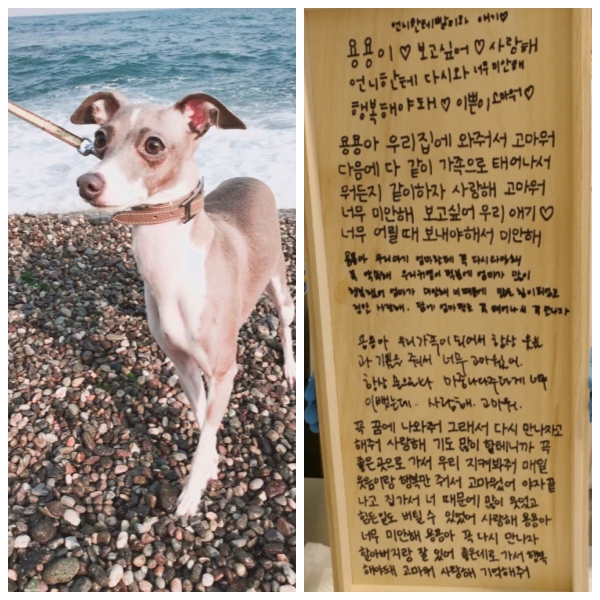 언니한테빨리와 애기♡
용용이♡ 보고싶어♡ 사랑해
언니한테 다시와 너무 미안해
행복해야돼♡ 이쁜이 고마워♡
용용아 우리집에 와줘서 고마워
다음에 다 같이 가족으로 태어나서
뭐든지 같이하자 사랑해 고마워
너무 미안해 보고싶어 우리 애기♡
너무 어릴때 보내야해서 미안해
용용아 우리아기 엄마한테 꼭 다시와야해
꼭 약속해 우리 덕분에 엄마가 많이
엄마가 미안해
엄마 꼭 태어나서 꼭 만나자
용용아 우리가족이 되어서 항상 웃음
과 기쁨을 줘서 너무 고마웠어.
항상 너무
이뻤는데.. 사랑해. 고마워.
꼭 꿈에 나와줘 그래서 다시 만나자고
해줘 사랑해 기도 많이 할테니까 꼭
좋은곳으로 가서 우리 지켜봐줘 매일
웃음이랑 행복만 줘서 고마웠어 야자끝
나고 집가서 너 때문에 많이 웃었고
힘든일도 버틸 수 있었어 사랑해 용용아
너무 미안해 용용아 꼭 다시 만나자
할아버지랑 잘 있어 좋은데로 가서 행복
해야돼 고마워 사랑해 기억해줘